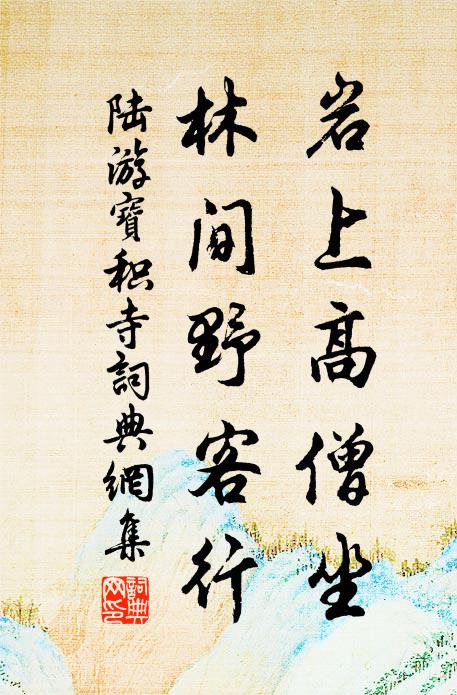 岩上高僧坐
林间野客行
陆游寶积寺詞典網集
詞典網印